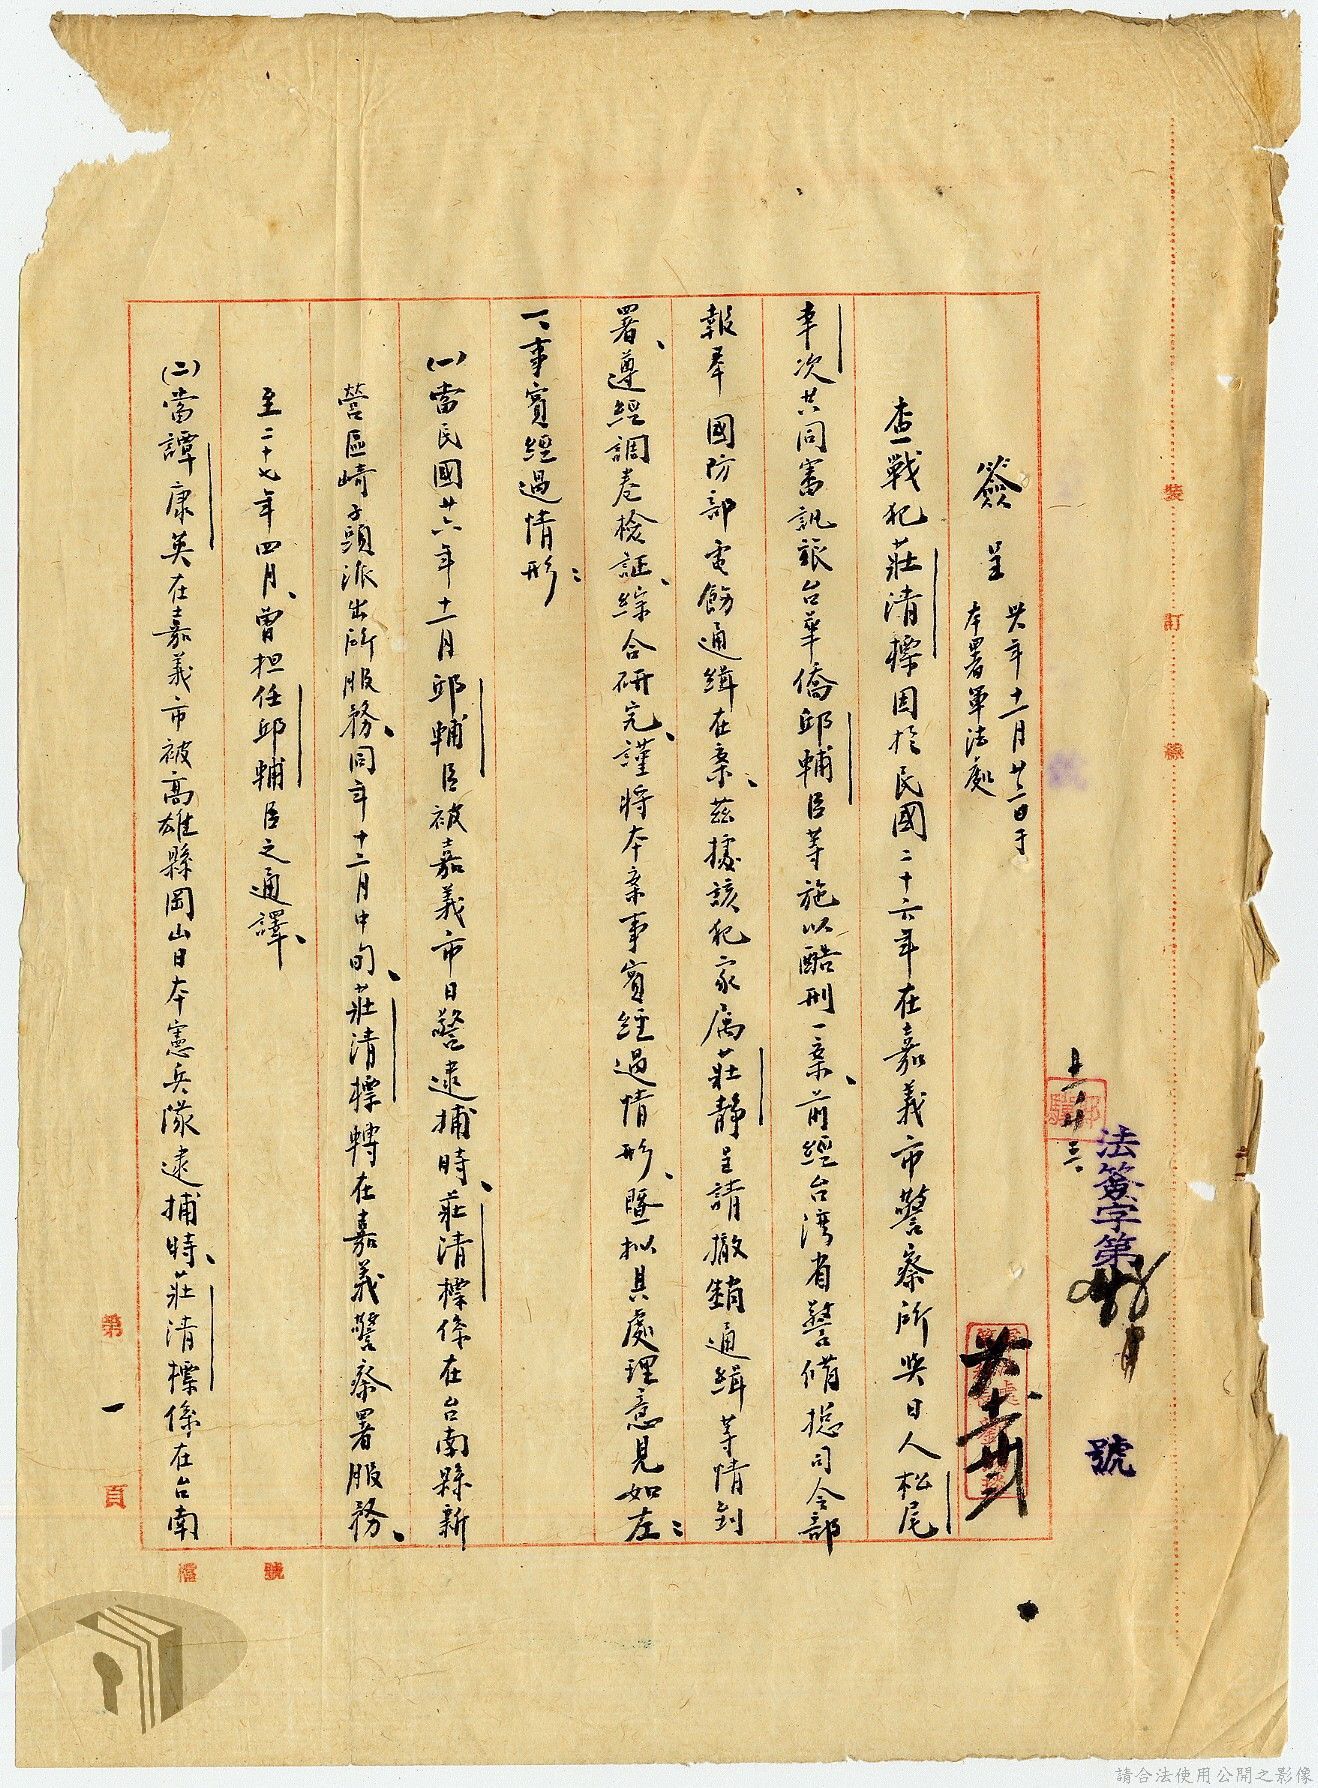 簽呈
卅八年十一月廿二日于
本署軍法處
查戰犯莊清標因於民國二十六年在嘉義市警察所與日人松尾
車次共同審訊旅台華僑邱輔臣等施以酷刑一案、前經台灣省警備總司令部
報奉 國防部電飭通緝在案、茲據該犯家屬莊靜呈請撤銷通緝等情到
署、遵經調卷檢証、綜合研究、謹將本案事實經過情形、暨擬具處理意見如左：
一、事實經過情形：
(一)當民國廿六年十一月邱輔臣被嘉義市日警逮捕時、莊清標係在台南縣新
營區崎子頭派出所服務、同年十二月中旬、莊清標轉在嘉義警察署服務、
至二十七年四月、曾担任邱輔臣之通譯、
(二)當譚康英在嘉義市被高雄縣岡山日本憲兵隊逮捕時、莊清標係在台南
法簽字第
號
裝
訂
線
第一頁
檔
號
請合法使用公開之影像